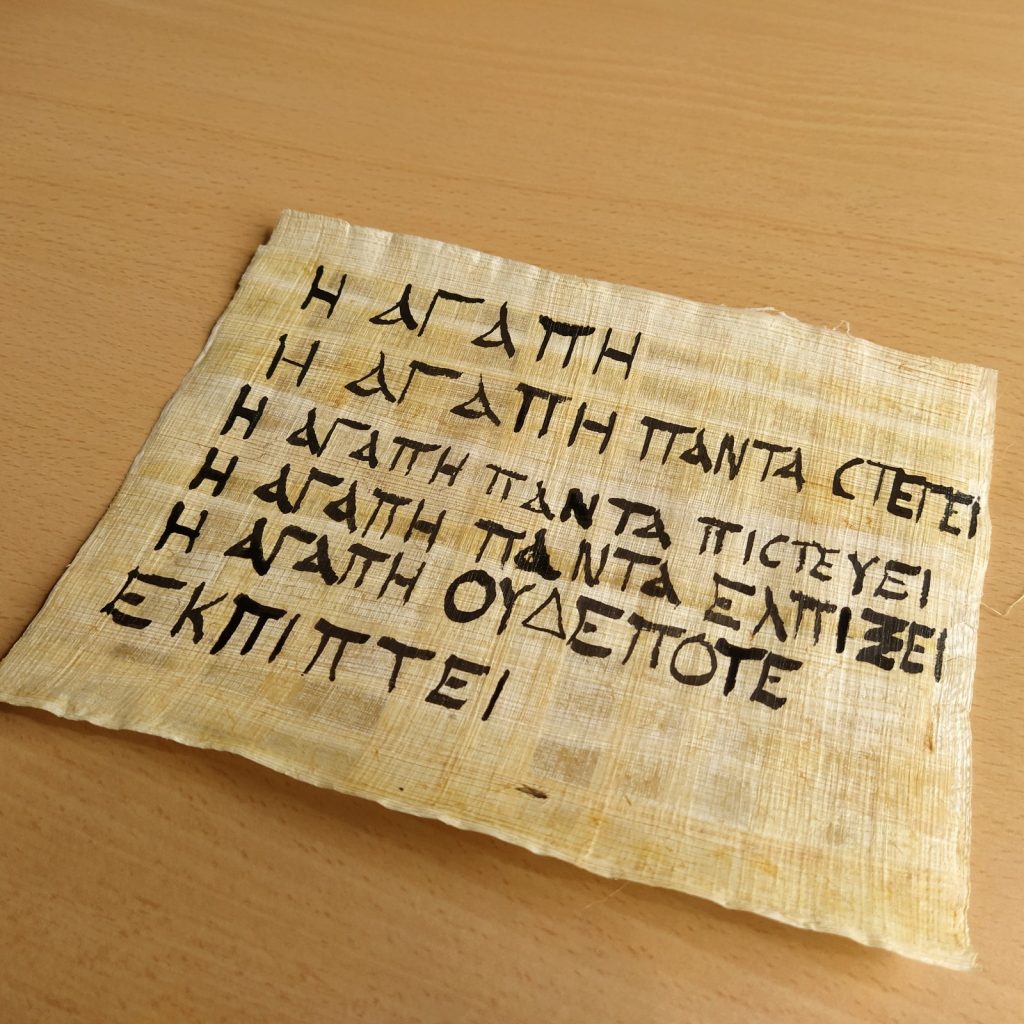 Η ΑΓΑΠΗ
Η ΑΓΑΠΗ ΠΑΝΤΑ ϹΤΕΓΕΙ
Η ΑΓΑΠΗ ΠΑΝΤΑ ΠΙϹΤΕΥΕΙ
Η ΑΓΑΠΗ ΠΑΝΤΑ ΕΛΠΙΖΕΙ
Η ΑΓΑΠΗ ΟΥΔΕΠΟΤΕ
ΕΚΠΙΠΤΕΙ